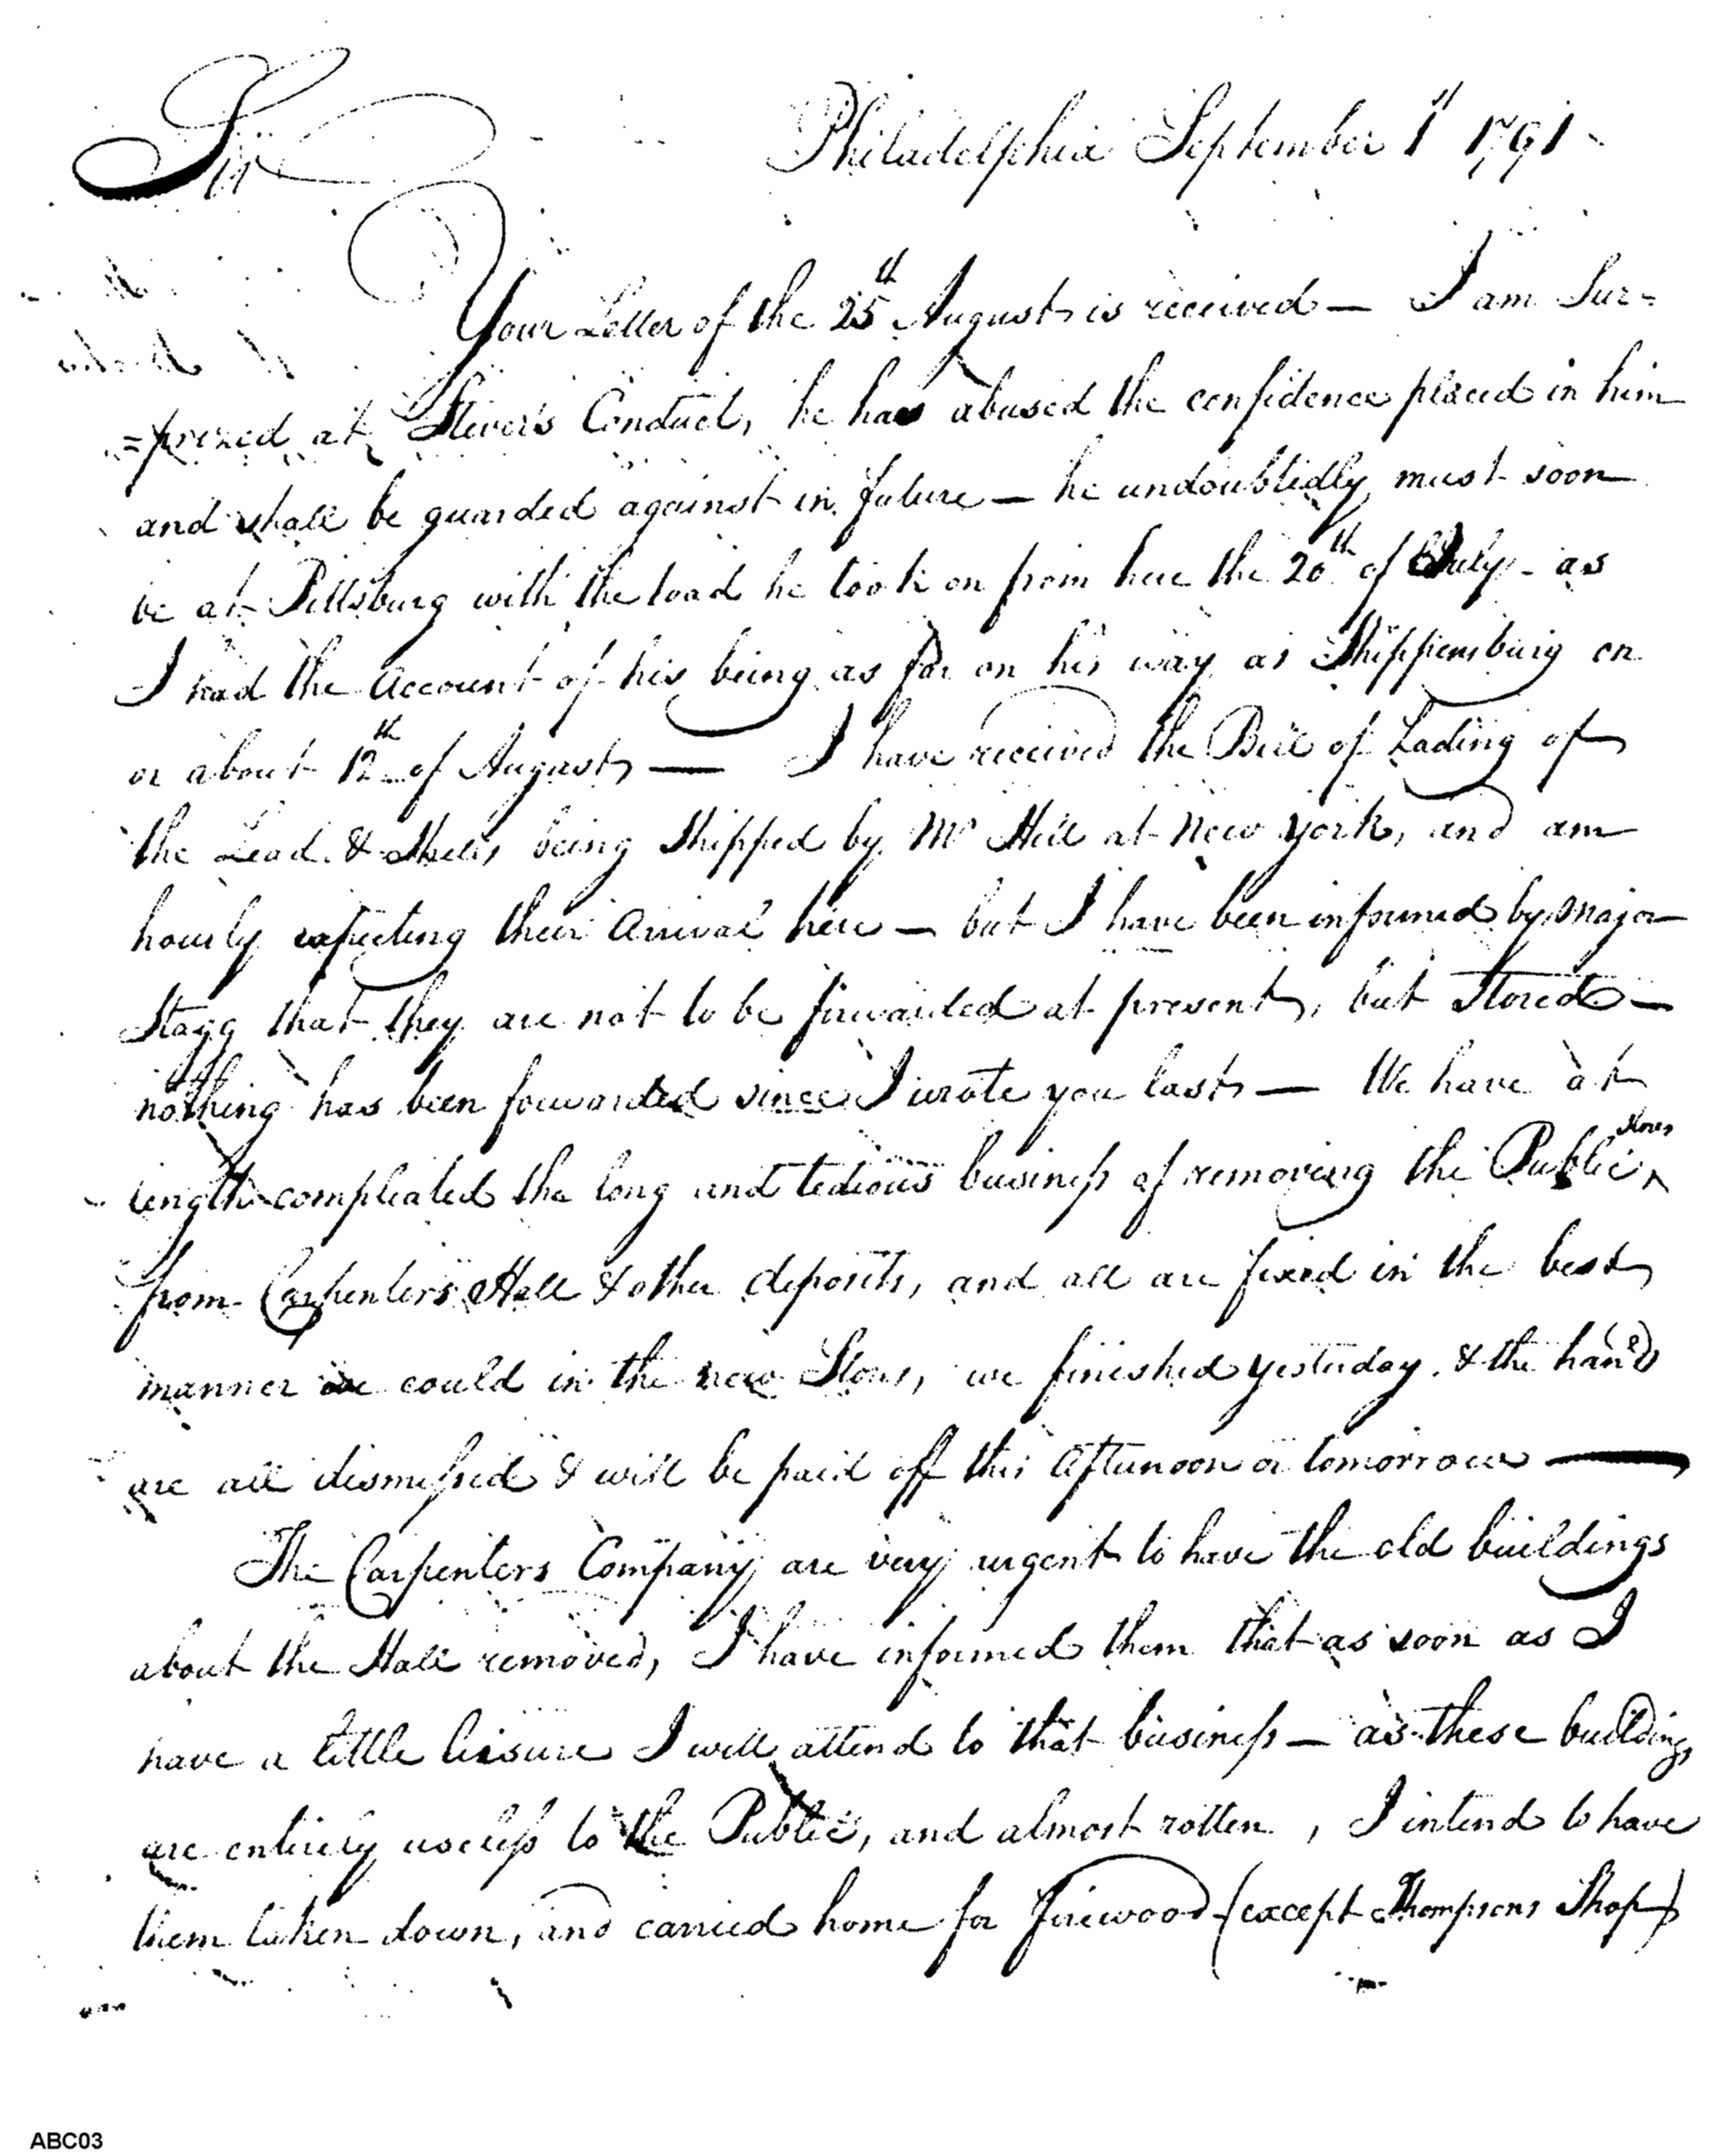 Sir
Philadelphia September 1st 1791
Your Letter of the 25th August is received — I am Sur=
=prized at Stever's Conduct, he has abused the confidence placed in him
and shall be guarded against in future — he undoubtidly must soon
be at Pittsburg with the load he took on from here the 20th of July - as
I had the Account of his being as far on his way as Shippensburg on
or about 12th of August — I have received the Bill of Lading of
the Lead & Shells being Shipped by Mr Hill at New York, and am
hourly expecting their Arrival here — but I have been informed by Major
Stagg that they are not to be forwarded at present, but Stored —
nothing has been forwarded since I wrote you last — We have at
length compleated the long and tedious business of removing the Public ^ Stores
from Carpenters Hall & other deposits, and all are fixed in the best
manner we could in the new Stores, we finished yesterday. & the hands
are all dismissed & will be paid off this Afternoon or tomorrow —
The Carpenters Company are very urgent to have the old buildings
about the Hall removed, I have informed them that as soon as I
have a little leisure I will attend to that business — as these buildings
are entirely useless to the Public, and almost rotten, I intend to have
them taken down, and carried home for firewood (except Thompsons Shop)
ABC03